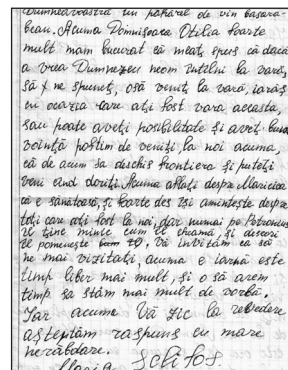 Dumneavoastră un păhărel de vin basara-
bean. Acuma Domnișoara Otilia foarte
mult mam bucurat că meați spus că dacă
a vrea Dumnezeu neom întîlni la vară,
să ne spuneț, osă veniț la vară, iarăș
cu ocazia care ați fost vara aceasta,
sau poate aveți posibilitate și aveț buna
voință poftim de veniți la noi acuma,
că de acum sa deschis frontiera și puteți
veni cînd doriți. Acuma aflați despre Maricica
că e sănătoasă, și foarte des își amintește despre
toți care ați fost la noi, dar numai pe Petronius
îl ține minte cum îl chiamă, și deseori
îl pomenește Vă invităm ca să
ne mai vizitați, acuma e iarnă este
timp liber mai mult, și o să avem
timp sa stăm mai mult de vorbă.
Iar acuma Vă zic la revedere
așteptăm raspuns cu mare
nerăbdare.
Maria